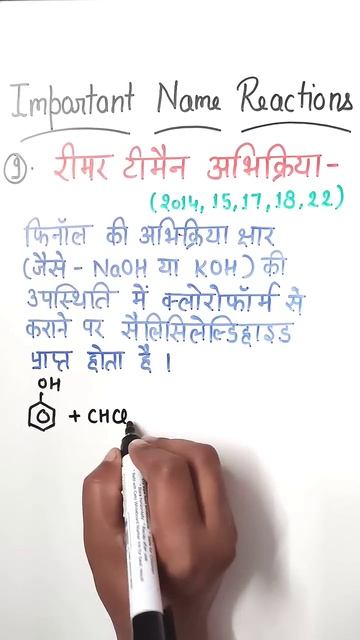 Impartant Name Reactions
9. रीमर टीमैन अभिक्रिया-
(2014, 15, 17, 18, 22)
फिनॉल की अभिक्रिया क्षार
(जैसे - NaOH या KOH) की
उपस्थिति में क्लोरोफॉर्म से
कराने पर सैलिसिलेल्डिहाइड
प्राप्त होता है।
OH
+ CHCl